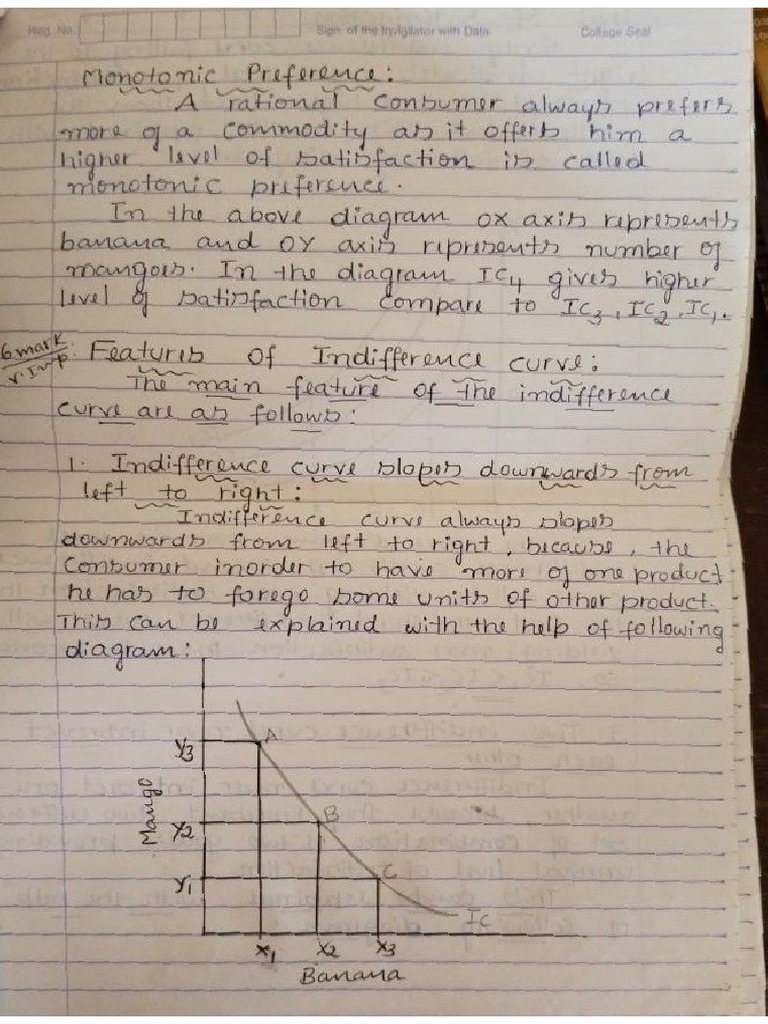 Reg. No.
Sign. of the Invigilator with Date
College Seal
Monotonic Preference:
A rational consumer always prefers
more of a commodity as it offers him a
higher level of satisfaction is called
monotonic preference.
In the above diagram OX axis represents
banana and OY axis represents number of
mangoes. In the diagram IC4 gives higher
level of satisfaction compare to IC3, IC2, IC1.
6 mark
v. Imp
Features of Indifference curve:
The main feature of the indifference
curve are as follows:
1. Indifference curve slopes downwards from
left to right:
Indifference curve always slopes
downwards from left to right, because, the
consumer inorder to have more of one product
he has to forego some units of other product.
This can be explained with the help of following
diagram:
Y3
A
Mango
Y2
B
Y1
C
IC
X1 X2 X3
Banana